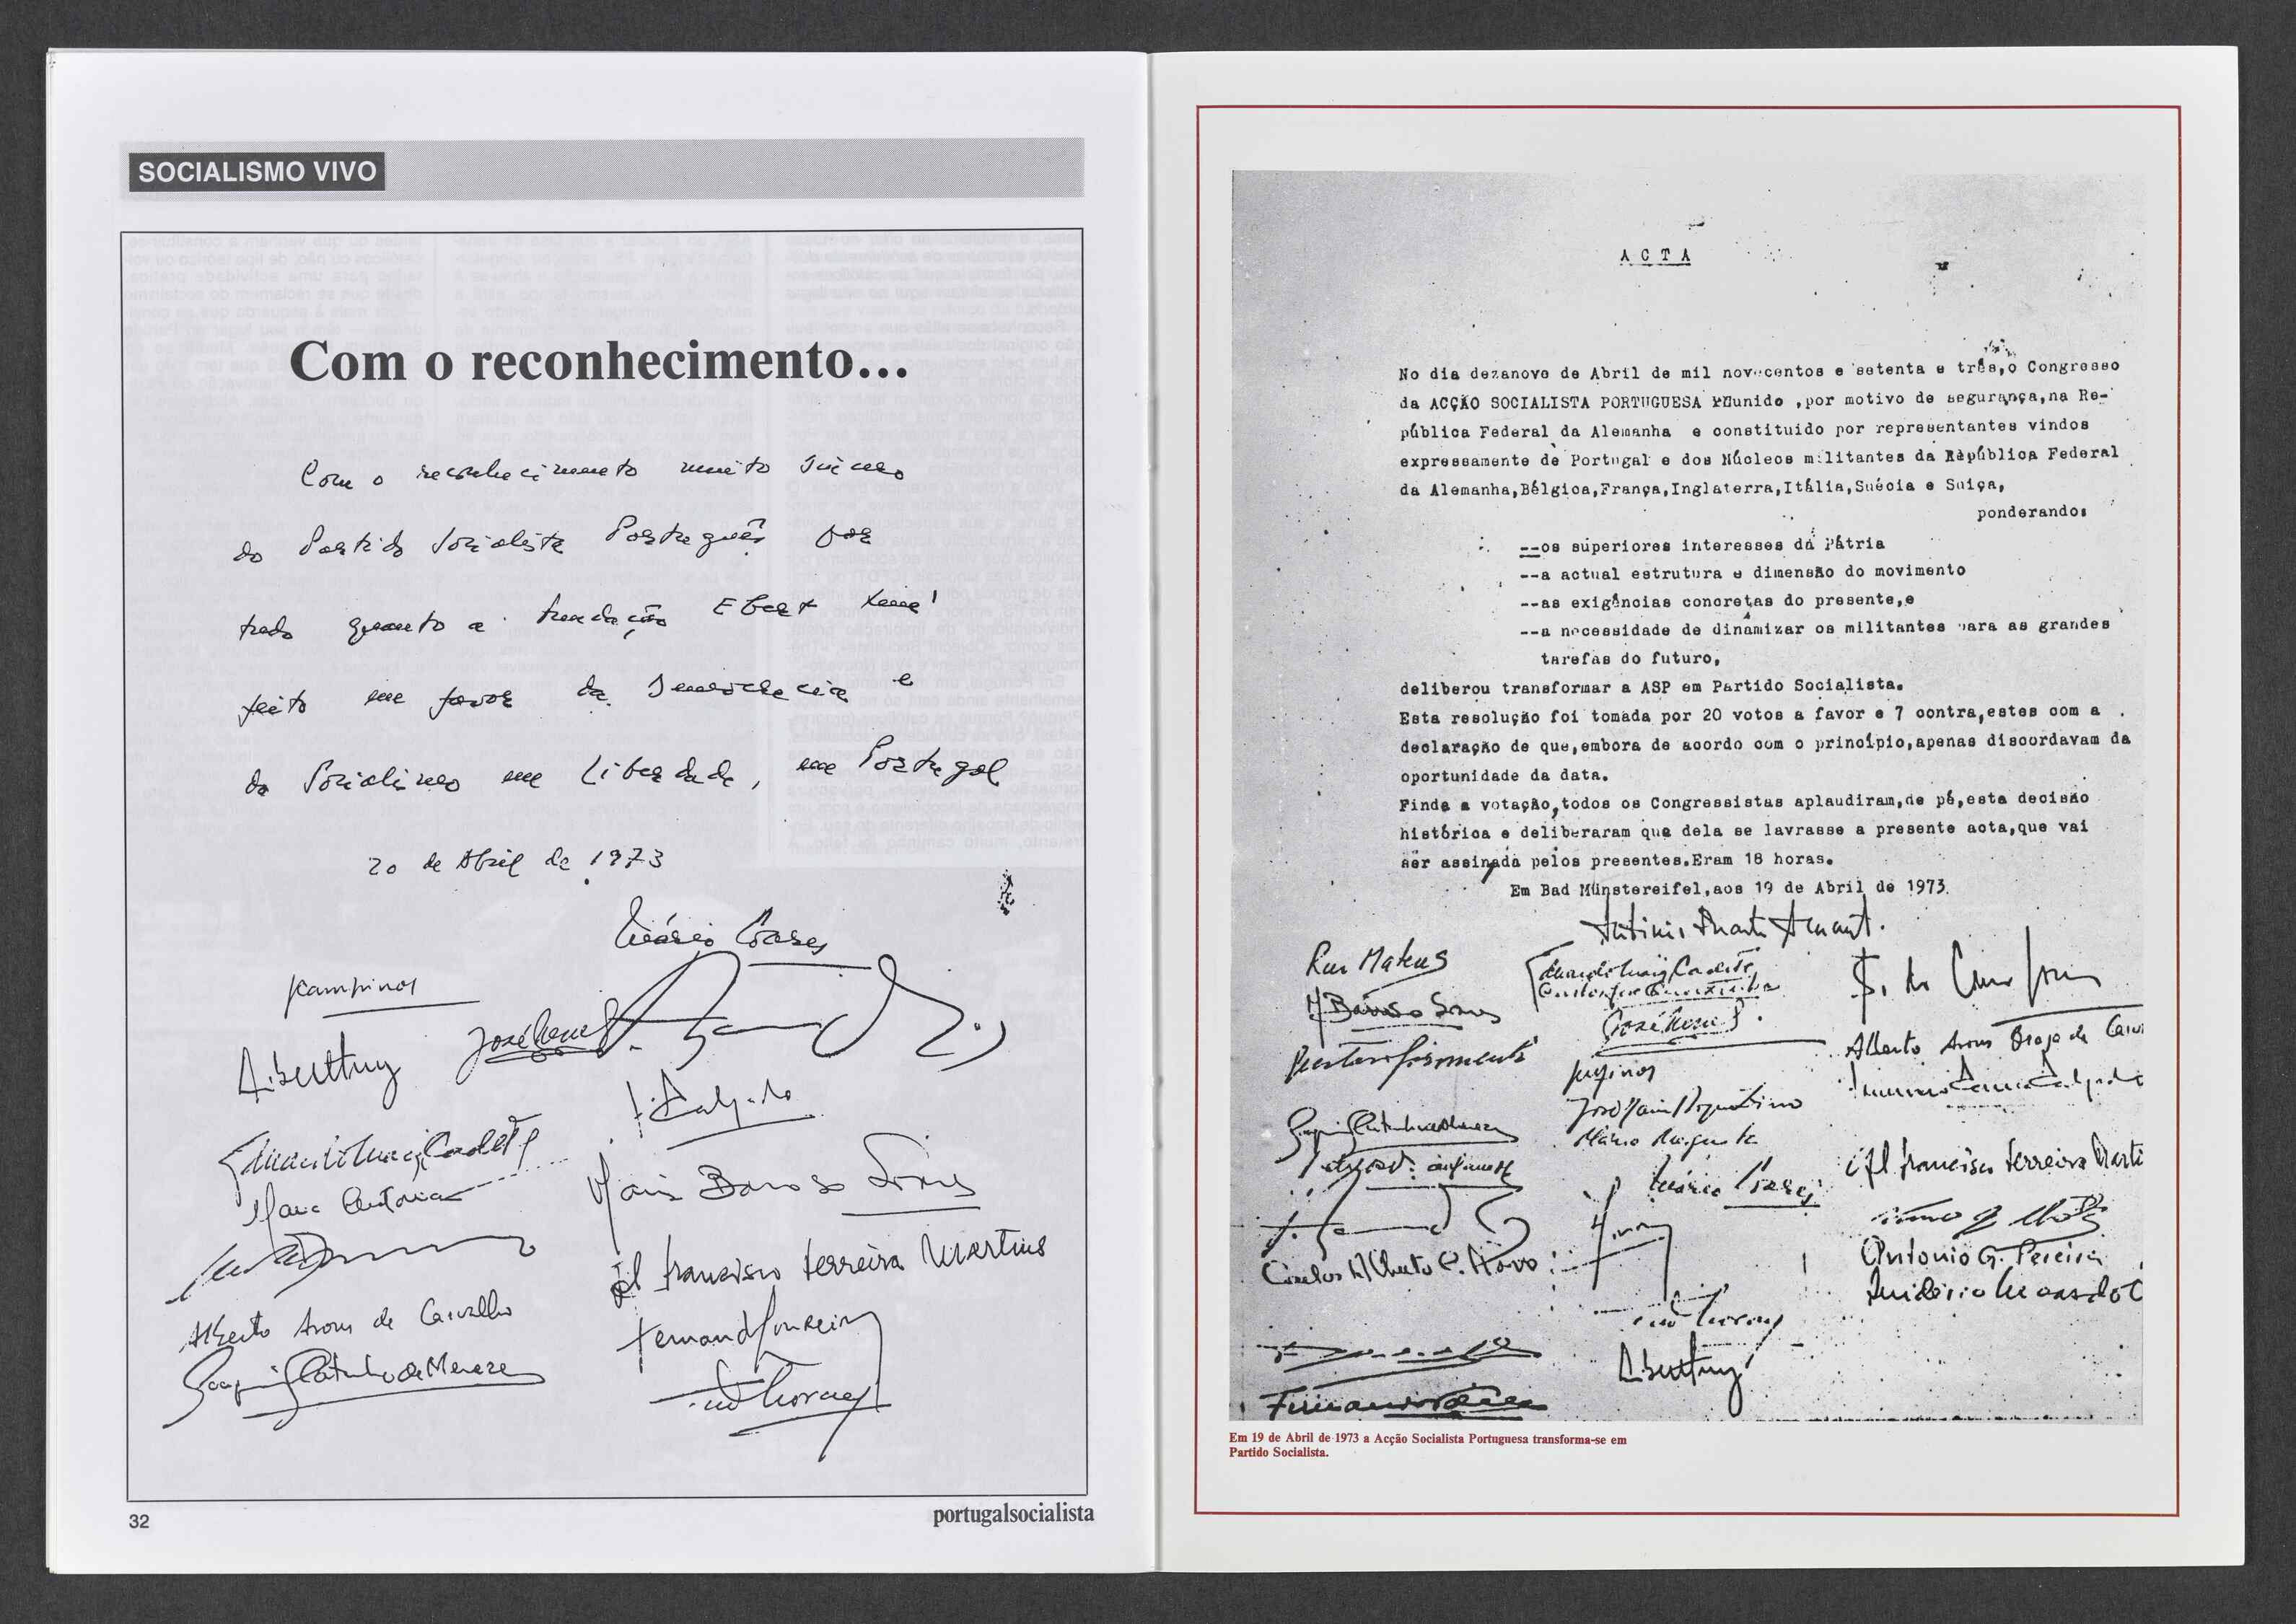 SOCIALISMO VIVO
Com o reconhecimento...
Com o reconhecimento muito sincero
do Partido Socialista Português por
tudo quanto a Fundação Ebert tem
feito em favor da Democracia e
do Socialismo em Liberdade, em Portugal
20 de Abril de 1973
Mário Soares
Maria Barroso Soares
Gil Francisco Ferreira Martins
Alberto Arons de Carvalho
Joaquim Catanho de Menezes
32
portugalsocialista
ACTA
No dia dezanove de Abril de mil novecentos e setenta e três,o Congresso
da ACÇÃO SOCIALISTA PORTUGUESA reunido ,por motivo de segurança,na Re-
pública Federal da Alemanha e constituido por representantes vindos
expressamente de Portugal e dos Núcleos militantes da República Federal
da Alemanha,Bélgica,França,Inglaterra,Itália,Suécia e Suiça,
ponderando:
--os superiores interesses da Pátria
--a actual estrutura e dimensão do movimento
--as exigências concretas do presente,e
--a necessidade de dinamizar os militantes para as grandes
tarefas do futuro,
deliberou transformar a ASP em Partido Socialista.
Esta resolução foi tomada por 20 votos a favor e 7 contra,estes com a
declaração de que,embora de acordo com o princípio,apenas discordavam da
oportunidade da data.
Finda a votação,todos os Congressistas aplaudiram,de pé,esta decisão
histórica e deliberaram que dela se lavrasse a presente acta,que vai
ser assinada pelos presentes.Eram 18 horas.
Em Bad Münstereifel,aos 19 de Abril de 1973.
Rui Mateus
M Barroso Soares
Alberto Arons Braga de Carv
Mário Soares
Gil Francisco Ferreira Marti
Carlos Alberto C. Novo
Antonio G. Pereira
Em 19 de Abril de 1973 a Acção Socialista Portuguesa transforma-se em
Partido Socialista.